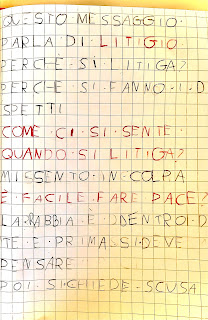 QUESTO MESSAGGIO
PARLA DI LITIGIO
PERCHÈ SI LITIGA?
PERCHÈ SI FANNO I D
SPETTI
COME CI SI SENTE
QUANDO SI LITIGA?
MI SSENTO IN COLPA
È FACILE FARE PACE?
LA RABBIA È DDENTRO D
TE E PRIMA SI DEVE
PENSARE
POI SI CHIEDE SCUSA